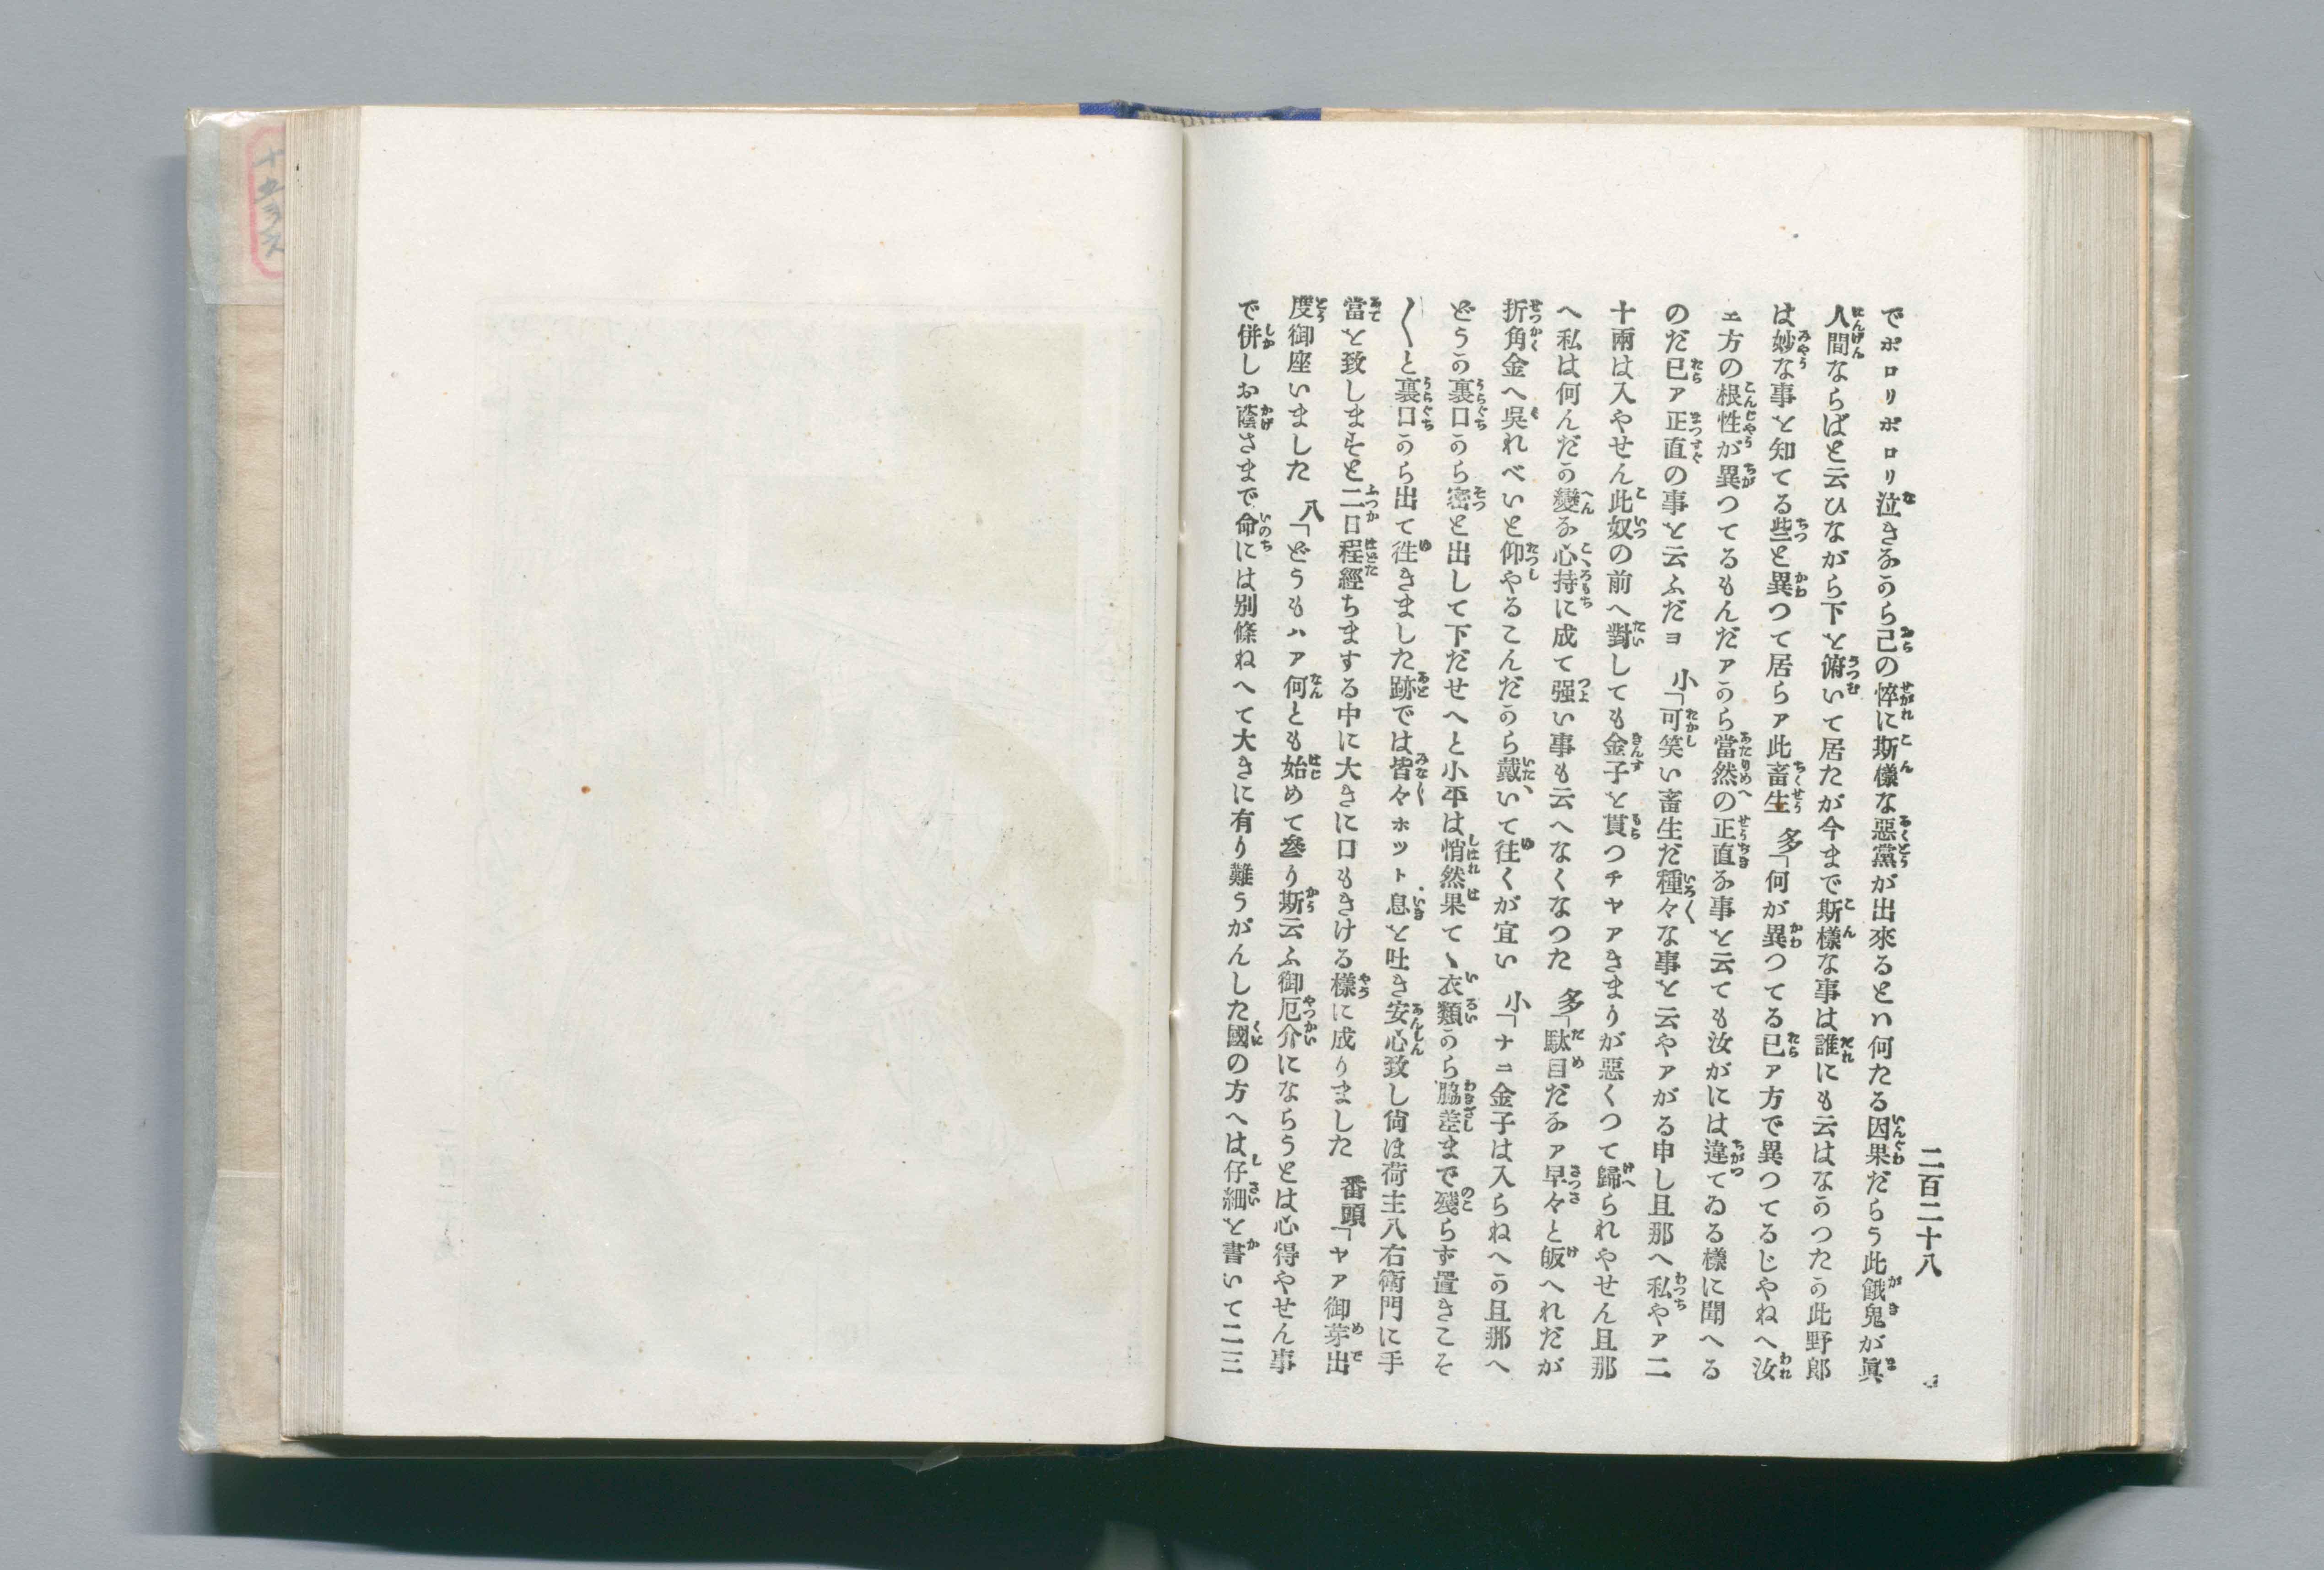 二百二十八
でポロリポロリ泣きながら己の悴に斯様な惡黨が出來るとハ何たる因果だらう此餓鬼が眞
人間ならばと云ひながら下を俯いて居たが今まで斯樣な事は誰にも云はなかつたか此野郎
は妙な事を知てる些と異つて居らア此畜生　多「何が異つてる已ア方で異つてるじやねへ汝
エ方の根性が異つてるもんだアから當然の正直な事を云ても汝がには違てゐる樣に聞へる
のだ已ア正直の事を云ふだヨ　小「可笑い畜生だ種々な事を云やアがる申し且那へ私やア二
十兩は入やせん此奴の前へ對しても金子を貰つチヤアきまりが惡くつて歸られやせん且那
へ私は何んだか變な心持に成て强い事も云へなくなつた　多「駄目だなア早々と皈へれだが
折角金へ吳れべいと仰やるこんだから戴いて往くが宜い　小「ナニ金子は入らねへか且那へ
どうか裏口から密と出して下だせへと小平は悄然果てヽ衣類から脇差まで殘らず置きこそ
〳〵と裏口から出て徃きました跡では皆々ホット息を吐き安心致し尙ほ荷主八右衛門に手
當を致しますと二日程經ちまする中に大きに口もきける樣に成りました　番頭「ヤア御芽出
度御座いました　八「どうもハア何とも始めて參り斯云ふ御厄介にならうとは心得やせん事
で併しお蔭さまで命には別條ねへて大きに有り難うがんした國の方へは仔細を書いて二三